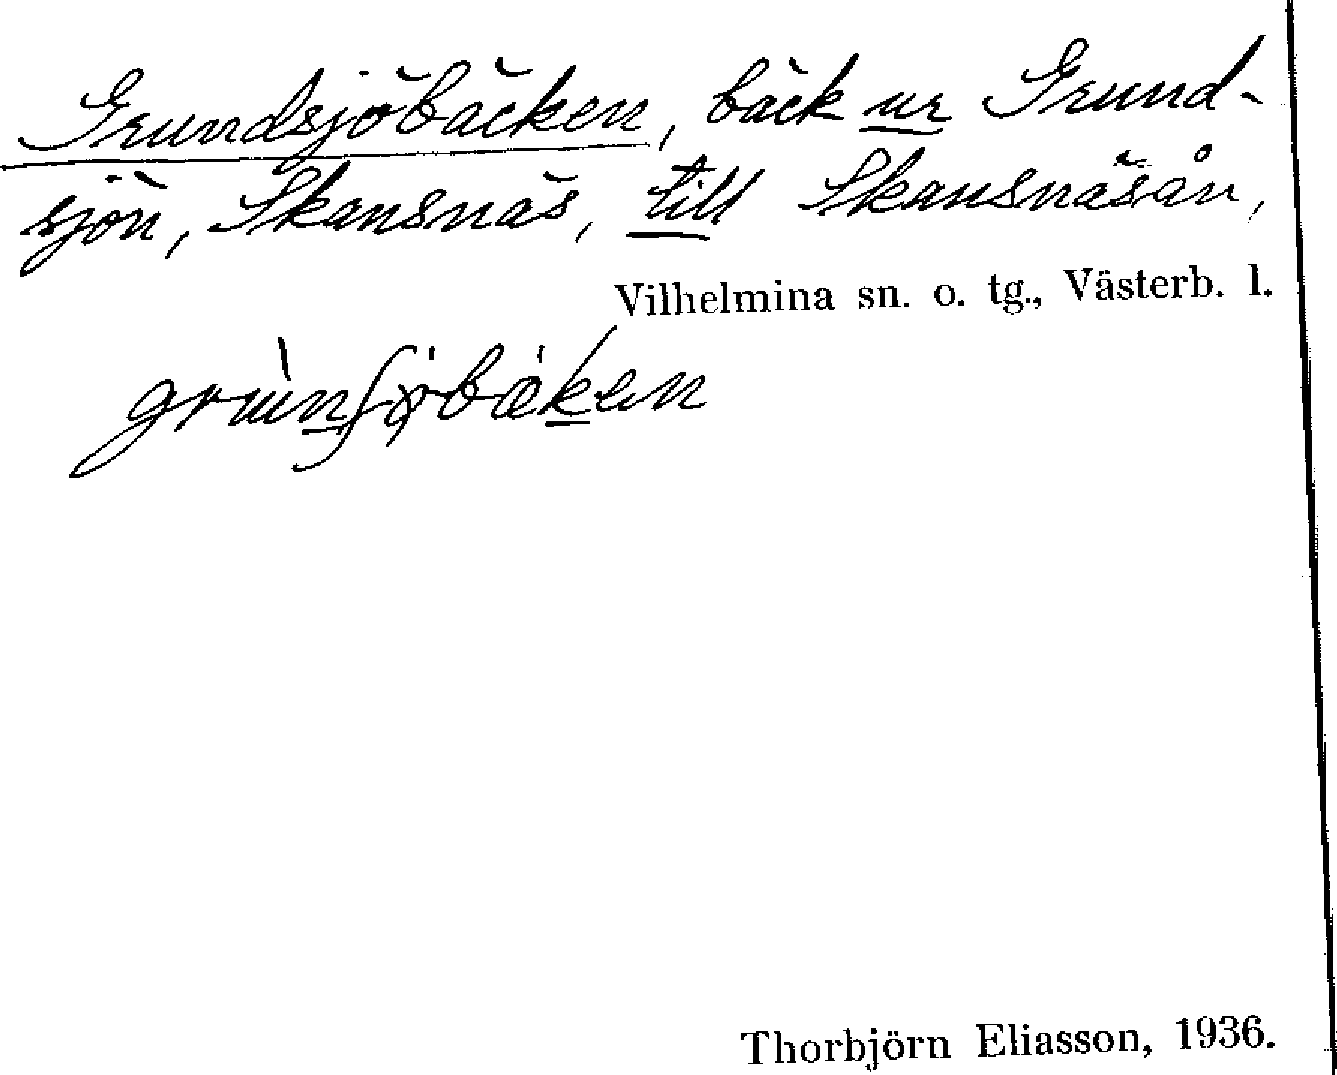 Grundsjöbäcken, bäck ur Grund-
sjön, Skansnäs, till Skansnäsån,
Vilhelmina sn. o. tg., Västerb. l.
Thorbjörn Eliasson, 1936.